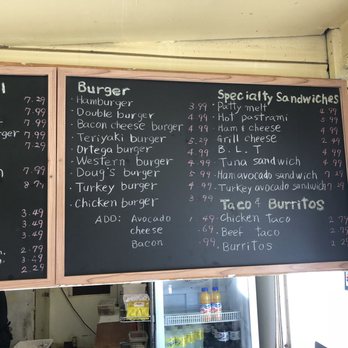 7.29
7.99
7.99
7.99
7.99
8.79
3.49
3.49
3.49
2.79
3.49
2.29
Burger
Hamburger 3.99
Double burger 4.99
Bacon cheese burger 4.99
Teriyaki burger 5.29
Ortega burger 4.99
Western burger 4.99
Doug's burger 5.99
Turkey burger 4.99
Chicken burger 3.99
ADD: Avocado 1.49
cheese .69
Bacon .99
Specialty Sandwiches
Patty melt 4.99
Hot pastrami 5.99
Ham & cheese 4.99
Grill cheese 2.99
B. L. T 4.99
Tuna sandwich 4.99
Ham avocado sandwich 7.29
Turkey avocado sandwich 7.29
Taco & Burritos
Chicken taco
Beef taco
Burritos